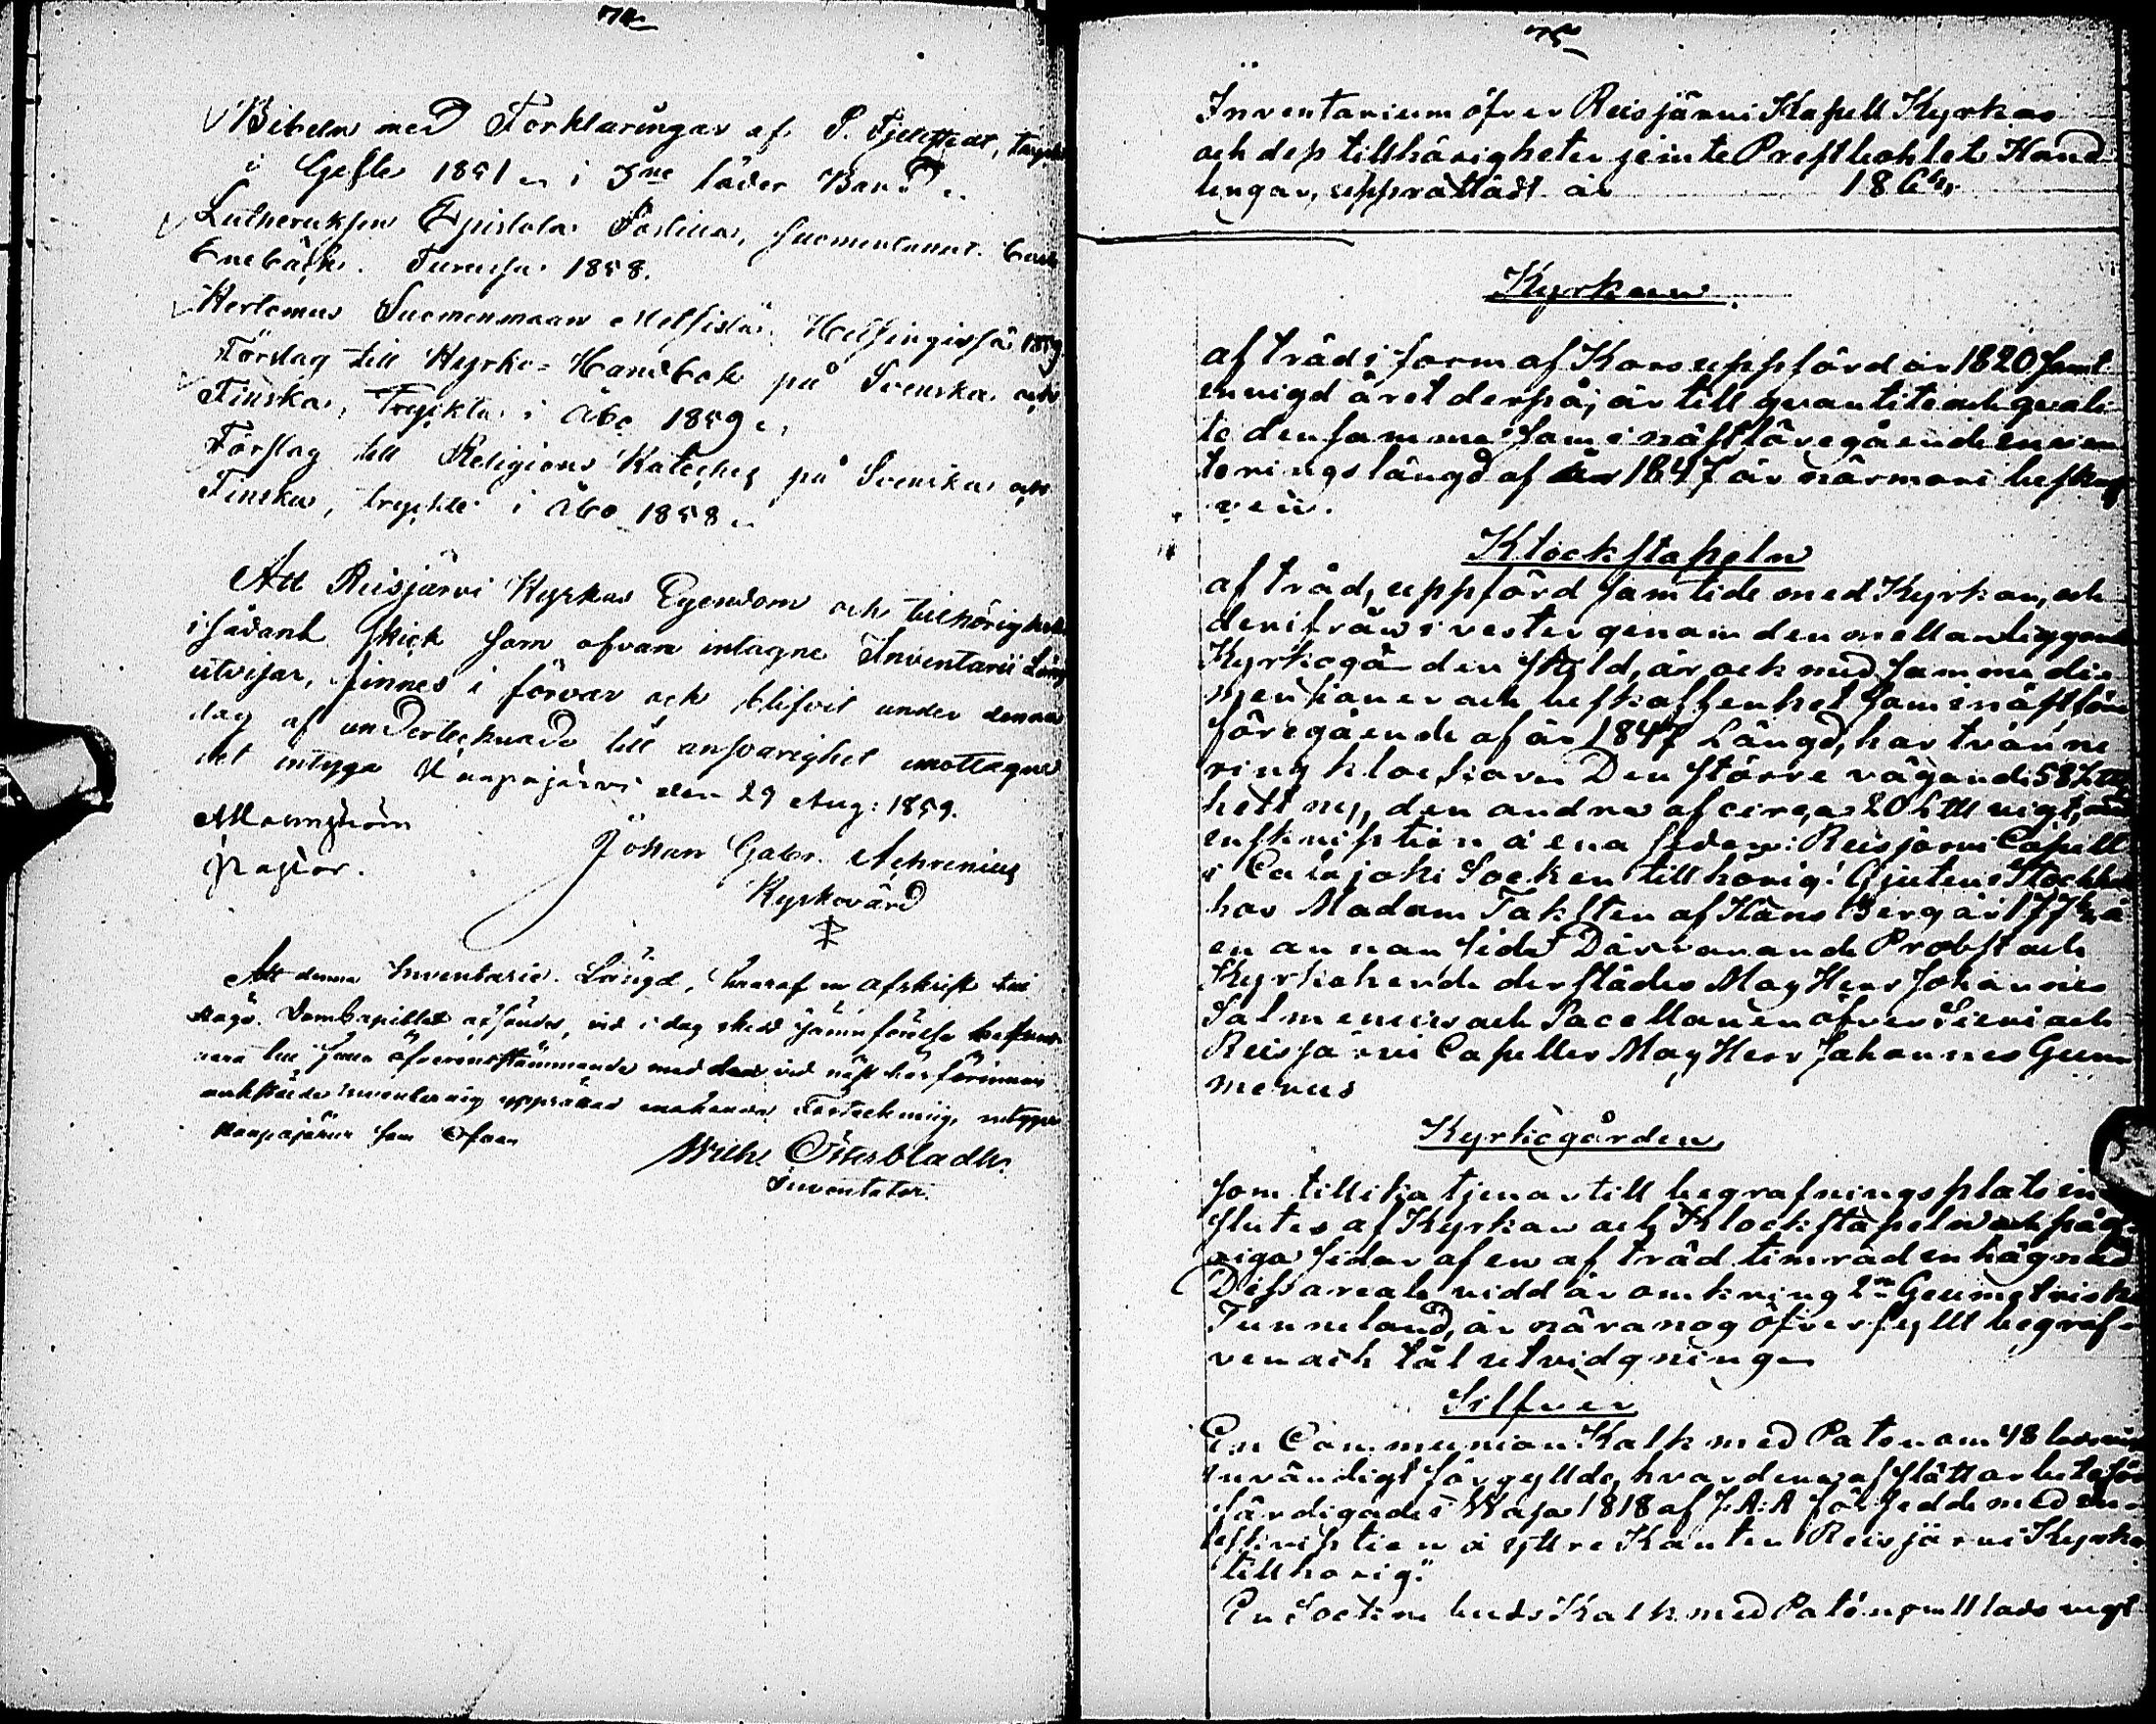 74
Bibeln med Förklaringar af P. Fjellstedt, tryckt
i Gefle 1851 i 3ne läder Band
Lutheruksen Epistola Postilla, suomentanut
Enebäck. Turussa 1858.
Kertomus Suomenmaan Metsistä. Helsingissä 1859
Förslag till Kyrko-Handbok på Svenska och
Finska, Tryckta i Åbo 1859
Förslag till Religions Kateches på Svenska och
Finska, tryckte i Åbo 1858
Att Reisjärvi Kyrkas Egendom och tillhörigheter
i sådant skick som ofvan intagne Inventarii Längd
utvisar, finnes i förvar och blifvit under denna
dag af undertecknade till ansvarighet emottagne
det intyga Haapajärvi den 29 Aug: 1859.
Malmström
Pastor.
Johan Gabr. Achrenius
Kyrkovärd
Att denna Inventarie-Längd, hvaraf en afskrift till
Höga Domkapitlet afsändes, vid i dag skedd jämnförelse befunnits
vara lika öfverensstämmande med den vid näst härförinnan
anstälda inventering upprättad enahanda Förteckning, intygar
Haapajärvi som Ofvan
Wilh. Österbladh.
Inventator.
75
Inventarium öfver Reisjärvi Kapell Kyrka
och dess tillhörigheter jemte Prestbohlets Hand
lingar, upprättadt år 186
Kyrkan
af träd i form af Kors uppförd år 1820 samt
invigd året derpå; är till quantité och quali
té densamma som i näst föregående inven
teringslängd af år 1847 är närmare beskrif
ven.
Klockstapeln
af träd, uppförd samtide med Kyrkan, och
derifrån i vester genom den mellanliggande
Kyrkogården skild, är ock med samma di
mensioner och beskaffenhet som i näst före
föregående af år 1847 Längd, har tvänne
ringklockor. Den större vägande 58 L
helt ny, den andra af circa 20 L vigt, med
inskription å ena sidan: Reisjärvi Capell
i Calajoki Socken tillhörig! Gjuten i Stockholm
hos Madam Fahlsten af Hans Berg år 177 å
en annan sida Dåvarande Probst och
Kyrkoherde derstädes Mag Herr Johannes
Salmenius och Sacellanen öfver Sievi och
Reisjärvi Capeller Mag Herr Johannes Gum
merus
Kyrkogården
som tillika tjenar till begrafningsplats in
slutes af Kyrkan och Klockstapeln och på öf
riga sidor af en af träd timrad inhägnad
Dess areala vidd är omkring 2ne Geometriska
Tunneland, är nära nog öfverfyllt begraf
ven och tål utvidgning
Silfver
En Communion Kalk med Paten om 48 lod
invändigt förgyllde, hvardera af slätt arbete för
färdigade i Wasa 1818 af J:A:A försedde med in
skription å yttre Kanten "Reisjärvi Kyrka
tillhörig."
En Sockne buds Kalk med Paten om 11 lods vigt